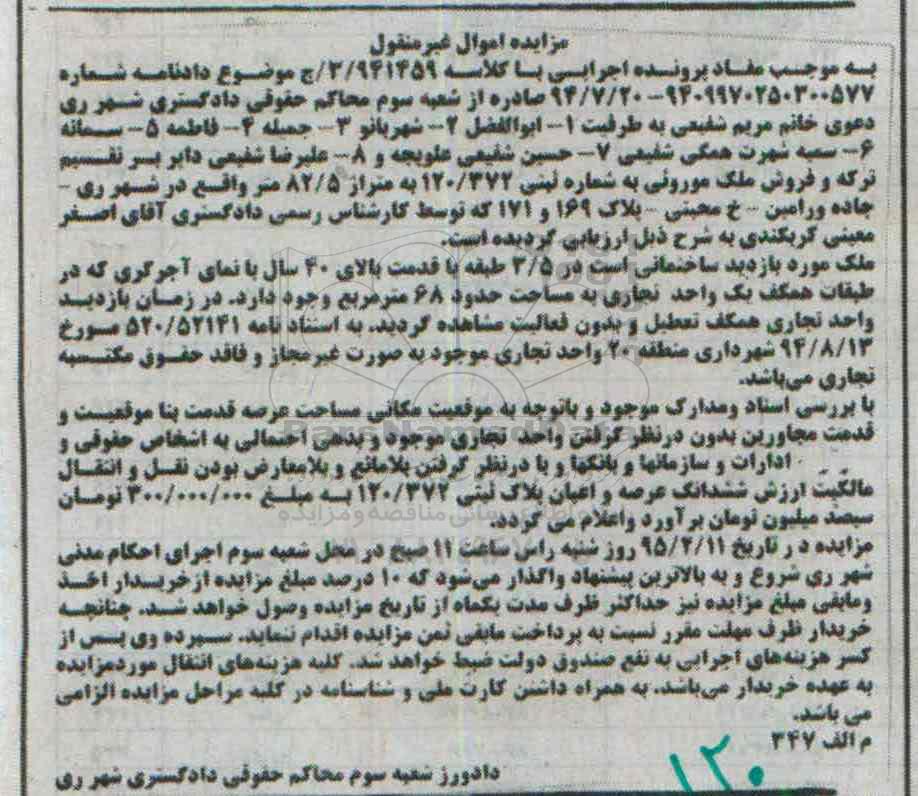 مزایده اموال غیرمنقول
به موجب مفاد پرونده اجرایی با کلاسه ۳/۹۴۱۴۵۹/ج موضوع دادنامه شماره
۹۴۰۹۹۷۰۲۵۰۳۰۰۵۷۷ -۹۴/۷/۲۰ صادره از شعبه سوم محاکم حقوقی دادگستری شهر ری
دعوی خانم مریم شفیعی به طرفیت ۱- ابوالفضل ۲- شهربانو ۳- جمیله ۴- فاطمه ۵- سمانه
۶- سمیه شهرت همگی شفیعی ۷- حسین شفیعی علویجه و ۸- علیرضا شفیعی دایر بر تقسیم
ترکه و فروش ملک موروثی به شماره ثبتی ۱۲۰/۳۷۲ به متراژ ۸۲/۵ متر واقع در شهر ری -
جاده ورامین - خ محبتی - پلاک ۱۶۹ و ۱۷۱ که توسط کارشناس رسمی دادگستری آقای اصغر
معینی گریکندی به شرح ذیل ارزیابی گردیده است.
ملک مورد بازدید ساختمانی است در ۳/۵ طبقه با قدمت بالای ۴۰ سال با نمای آجرگری که در
طبقات همکف یک واحد تجاری به مساحت حدود ۶۸ مترمربع وجود دارد. در زمان بازدید
واحد تجاری همکف تعطیل و بدون فعالیت مشاهده گردید. به استناد نامه ۵۲۰/۵۲۱۴۱ مورخ
۹۴/۸/۱۳ شهرداری منطقه ۲۰ واحد تجاری موجود به صورت غیرمجاز و فاقد حقوق مکتسبه
تجاری می‌باشد.
با بررسی اسناد ومدارک موجود و باتوجه به موقعیت مکانی مساحت عرصه قدمت بنا موقعیت و
قدمت مجاورین بدون درنظر گرفتن واحد تجاری موجود و بدهی احتمالی به اشخاص حقوقی و
ادارات و سازمانها و بانکها و با درنظر گرفتن بلامانع و بلامعارض بودن نقل و انتقال
مالکیت ارزش ششدانگ عرصه و اعیان پلاک ثبتی ۱۲۰/۳۷۲ به مبلغ ۳۰۰/۰۰۰/۰۰۰ تومان
سیصد میلیون تومان برآورد واعلام می گردد.
مزایده در تاریخ ۹۵/۲/۱۱ روز شنبه راس ساعت ۱۱ صبح در محل شعبه سوم اجرای احکام مدنی
شهر ری شروع و به بالاترین پیشنهاد واگذار می‌شود که ۱۰ درصد مبلغ مزایده از خریدار اخذ
ومابقی مبلغ مزایده نیز حداکثر ظرف مدت یکماه از تاریخ مزایده وصول خواهد شد. چنانچه
خریدار ظرف مهلت مقرر نسبت به پرداخت مابقی ثمن مزایده اقدام ننماید. سپرده وی پس از
کسر هزینه‌های اجرایی به نفع صندوق دولت ضبط خواهد شد. کلیه هزینه‌های انتقال موردمزایده
به عهده خریدار می‌باشد. به همراه داشتن کارت ملی و شناسنامه در کلیه مراحل مزایده الزامی
می باشد.
م الف ۳۴۷
دادورز شعبه سوم محاکم حقوقی دادگستری شهر ری
۱۲۰
ParsNamadData